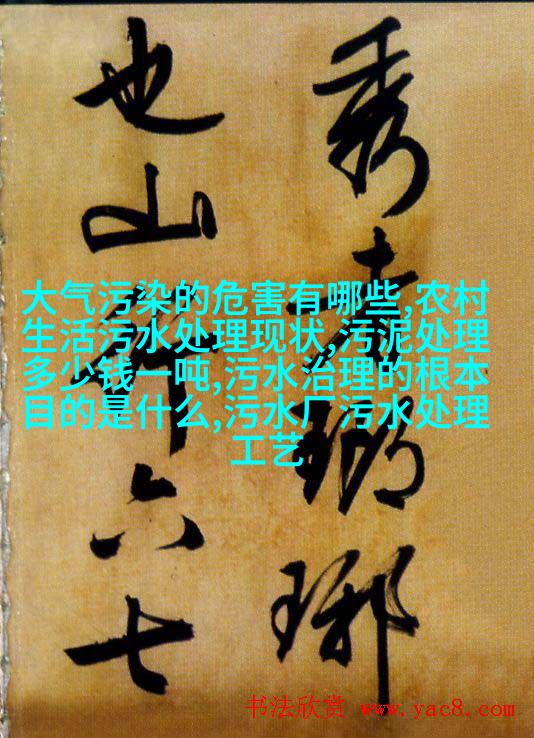 秀者瑯琊
也山行六七
大气污染的危害有哪些,农村
生活污水处理现状,污泥处理
多少钱一吨,污水治理的根本
目的是什么,污水厂污水处理
工艺
书法欣赏 www.yac8.com